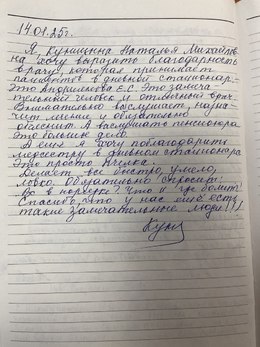 14.01.25г.
Я, Куницына Наталья Михайлов
на хочу выразить благодарность
врачу, которая принимает
пациентов в дневной стационар.
Это Андриянова Е.С. Это замеча
тельный человек и отличный врач.
Внимательно выслушает, назна
чит лечение и обязательно
объяснит. А выслушать пенсионера
это большое дело.
А ещё я хочу поблагодарить
медсестру в дневном стационаре
Это просто пчелка.
Делает всё быстро, умело,
ловко. Обязательно спросит:
Всё в порядке? Что и где болит?
Спасибо, что у нас ещё есть
такие замечательные люди!!!
Куниц